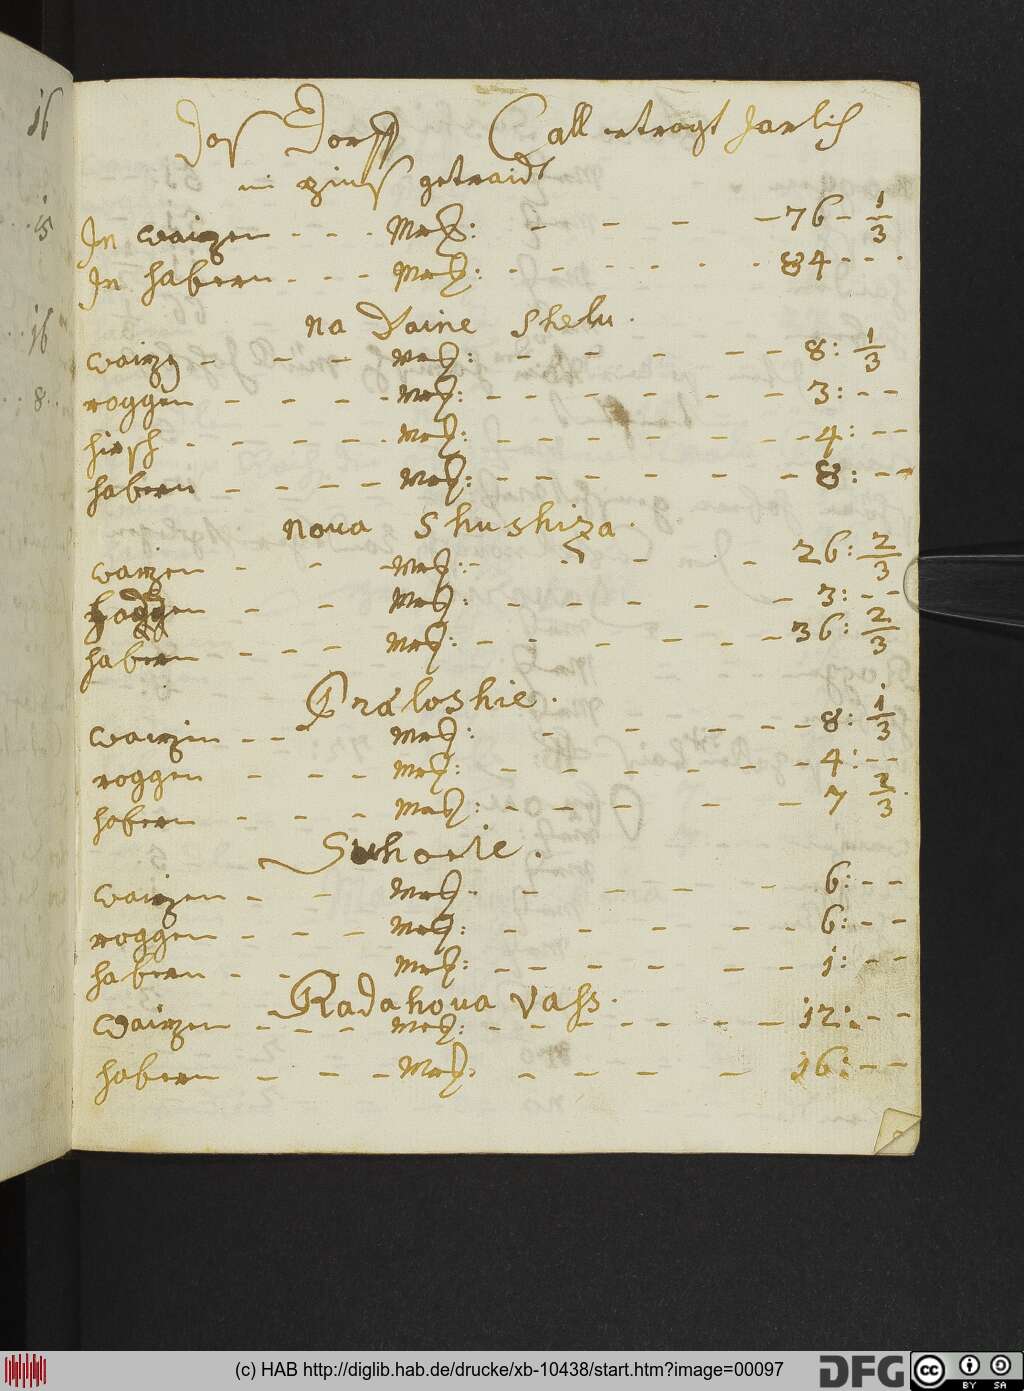 Das Dorff Call ertragt Jarlich
in zinss getraidt
In waizen - - - Mez: - - - - 76 - 1/3
In habern - - - Mez: - - - - - 84 - - -
na Daine Shelu.
waizen - - - Mez: - - - - - 8: 1/3
roggen - - - - Mez: - - - - - 3: - -
hirsch - - - - - Mez: - - - - - 4: - -
habern - - - - Mez: - - - - - 8: - -
nova Shushiza.
waizen - - - Mez: - - - - 26: 2/3
roggen - - - Mez: - - - - - 3: - -
habern - - - Mez: - - - - - 36: 2/3
Praloshie.
waizen - - - Mez: - - - - 8: 1/3
roggen - - - Mez: - - - - - 4: - -
habern - - - Mez: - - - - - 7 2/3
Suhorie.
waizen - - Mez: - - - - 6: - -
roggen - - - Mez: - - - - - 6: - -
habern - - - Mez: - - - - - 1: - -
Radahova Vass.
Waizen - - - Mez: - - - - - 12: - -
habern - - - Mez: - - - - 16: - -
16
15
16
8
(c) HAB http://diglib.hab.de/drucke/xb-10438/start.htm?image=00097
DFG
cc BY SA